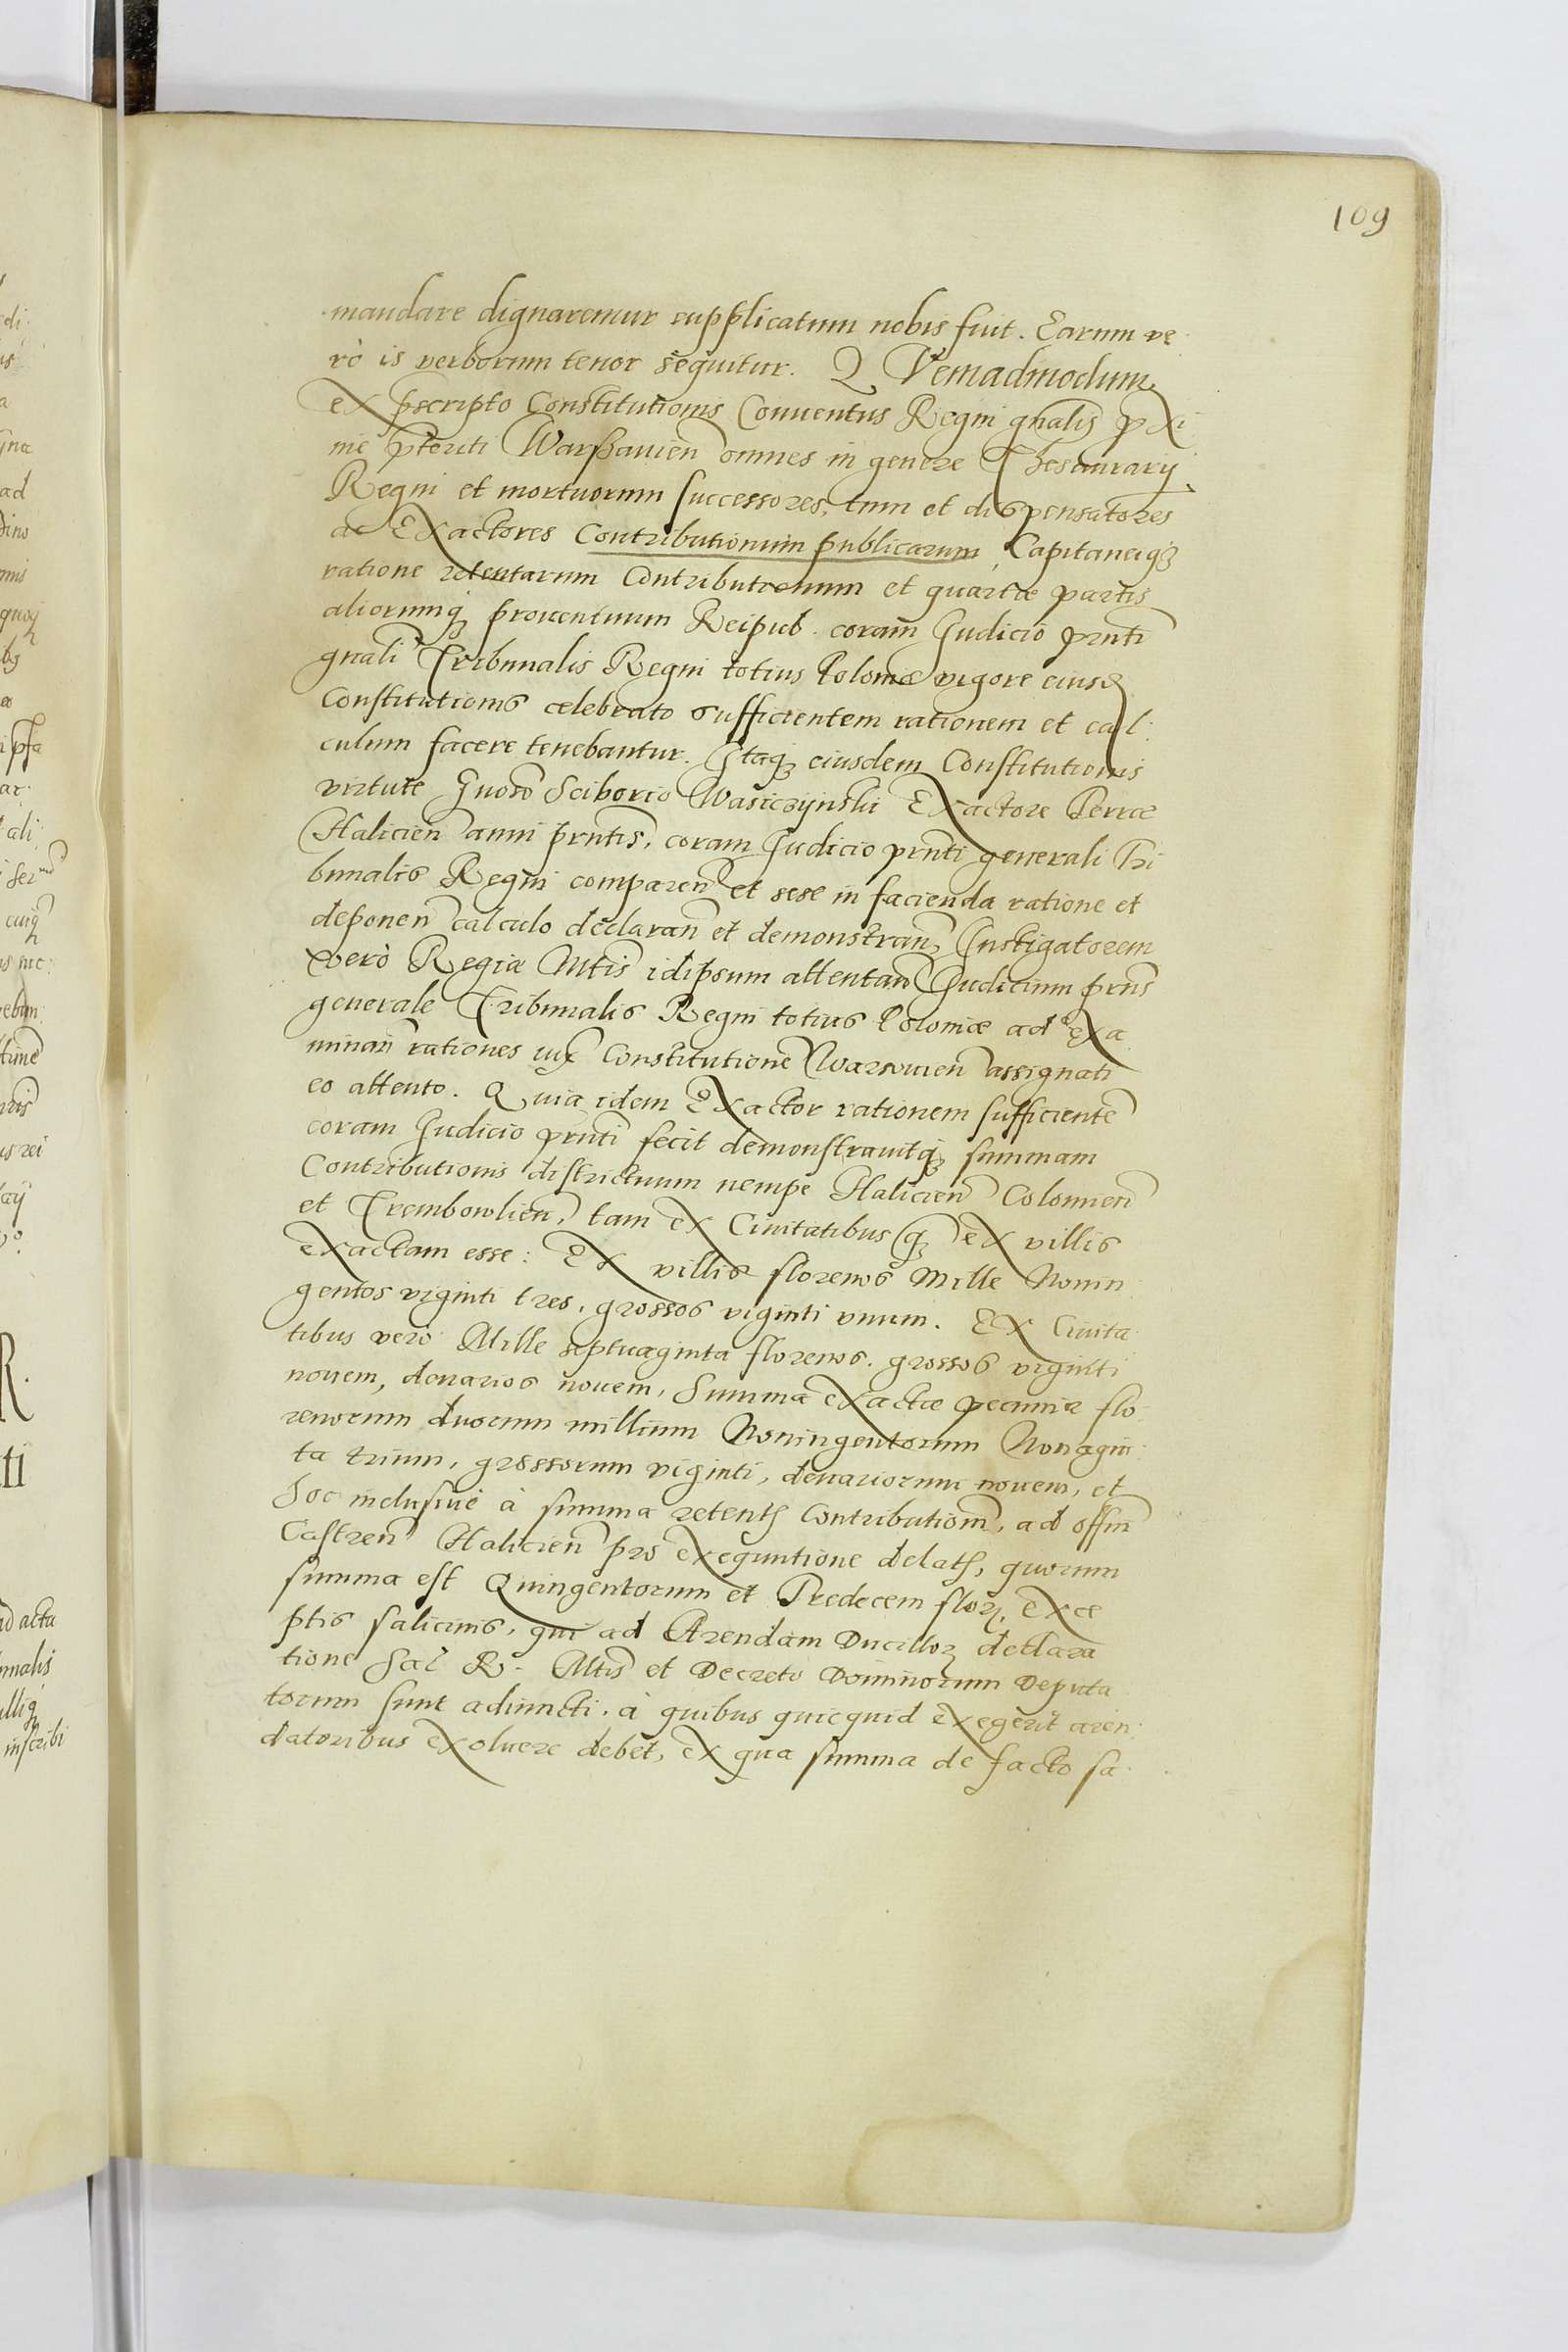 109
mandare dignaremur supplicatum nobis fuit. Earum ve
rò is verborum tenor sequitur. QVemadmodum
ex pscripto Constitutionis Conuentus Regni gnalis pxi
me pteriti Warßauien omnes in genere Thesaurarij
Regni et mortuorum successores, tum et dispensatores
ac Exactores Contributionum publicarum, Capitaneiq
ratione retentarum Contributionum et quartæ partis
aliorumq prouentuum Reipub. coram Judicio pnti
gnali Tribunalis Regni totius Poloniæ vigore eiusd
Constitutionis celebrato sufficientem rationem et cal:
culum facere tenebantur. Itaq eiusdem Constitutionis
virtute Gnoso Sciborio Wasiczijnski Exactore Terræ
Halicien anni pntis, coram Judicio pnti generali Tri
bunalis Regni comparen et sese in facienda ratione et
deponen calculo declaran et demonstran, Instigatorem
verò Regiæ Mtis idipsum attentan Judicium pns
generale Tribunalis Regni totius Poloniæ ad exa
minan rationes iux Constitutione Warsouien assignati
eo attento. Quia idem Exactor rationem sufficiente
coram Judicio pnti fecit demonstrauitq summam
Contributionis districtuum nempe Halicien Colomien
et Trembowlien, tam ex Ciuitatibus q ex villis
exactam esse: Ex villis florenos Mille Nonin
gentos viginti tres, grossos viginti vnum. Ex Ciuita
tibus verò Mille septuaginta florenos. grossos viginti
nouem, denarios nouem, Summa exactæ pecuniæ flo
renorum duorum millium Noningentorum Nonagin
ta trium, grossorum viginti, denariorum nouem, et
hoc inclusiuè à summa retent Contribution, ad offin
Castren Halicien pro exequutione delat, quorum
summa est Quingentorum et Tredecem flor, exce
ptis salicinis, qui ad Arendam Ducillor declara
tione Sac R. Mtis et Decreto Dominorum Deputa
torum sunt adiuncti. à quibus quicquid exegerit aren
datoribus exoluere debet, ex qua summa de facto sa